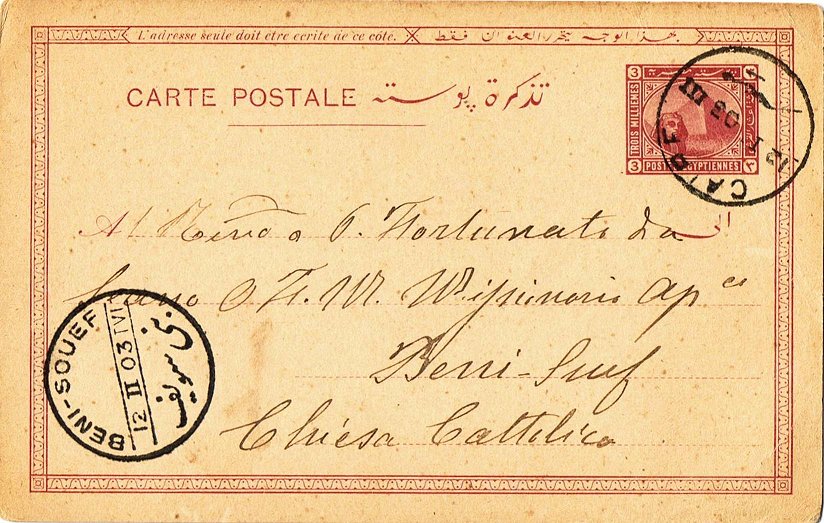 L'adresse seule doit être écrite de ce côté. بهذا الوجه يحرر العنوان فقط
CARTE POSTALE تذكرة پوسته
3
TROIS MILLIEMES
3
POSTES EGYPTIENNES
٣
CAIRE
12 II 03 III
Al Rev̅do P. Fortunato da
Seano O. F. M. Missionario Ap.co
Beni-Suef
Chiesa Cattolica
BENI-SOUEF
12 II 03 IVI
بنى سويف